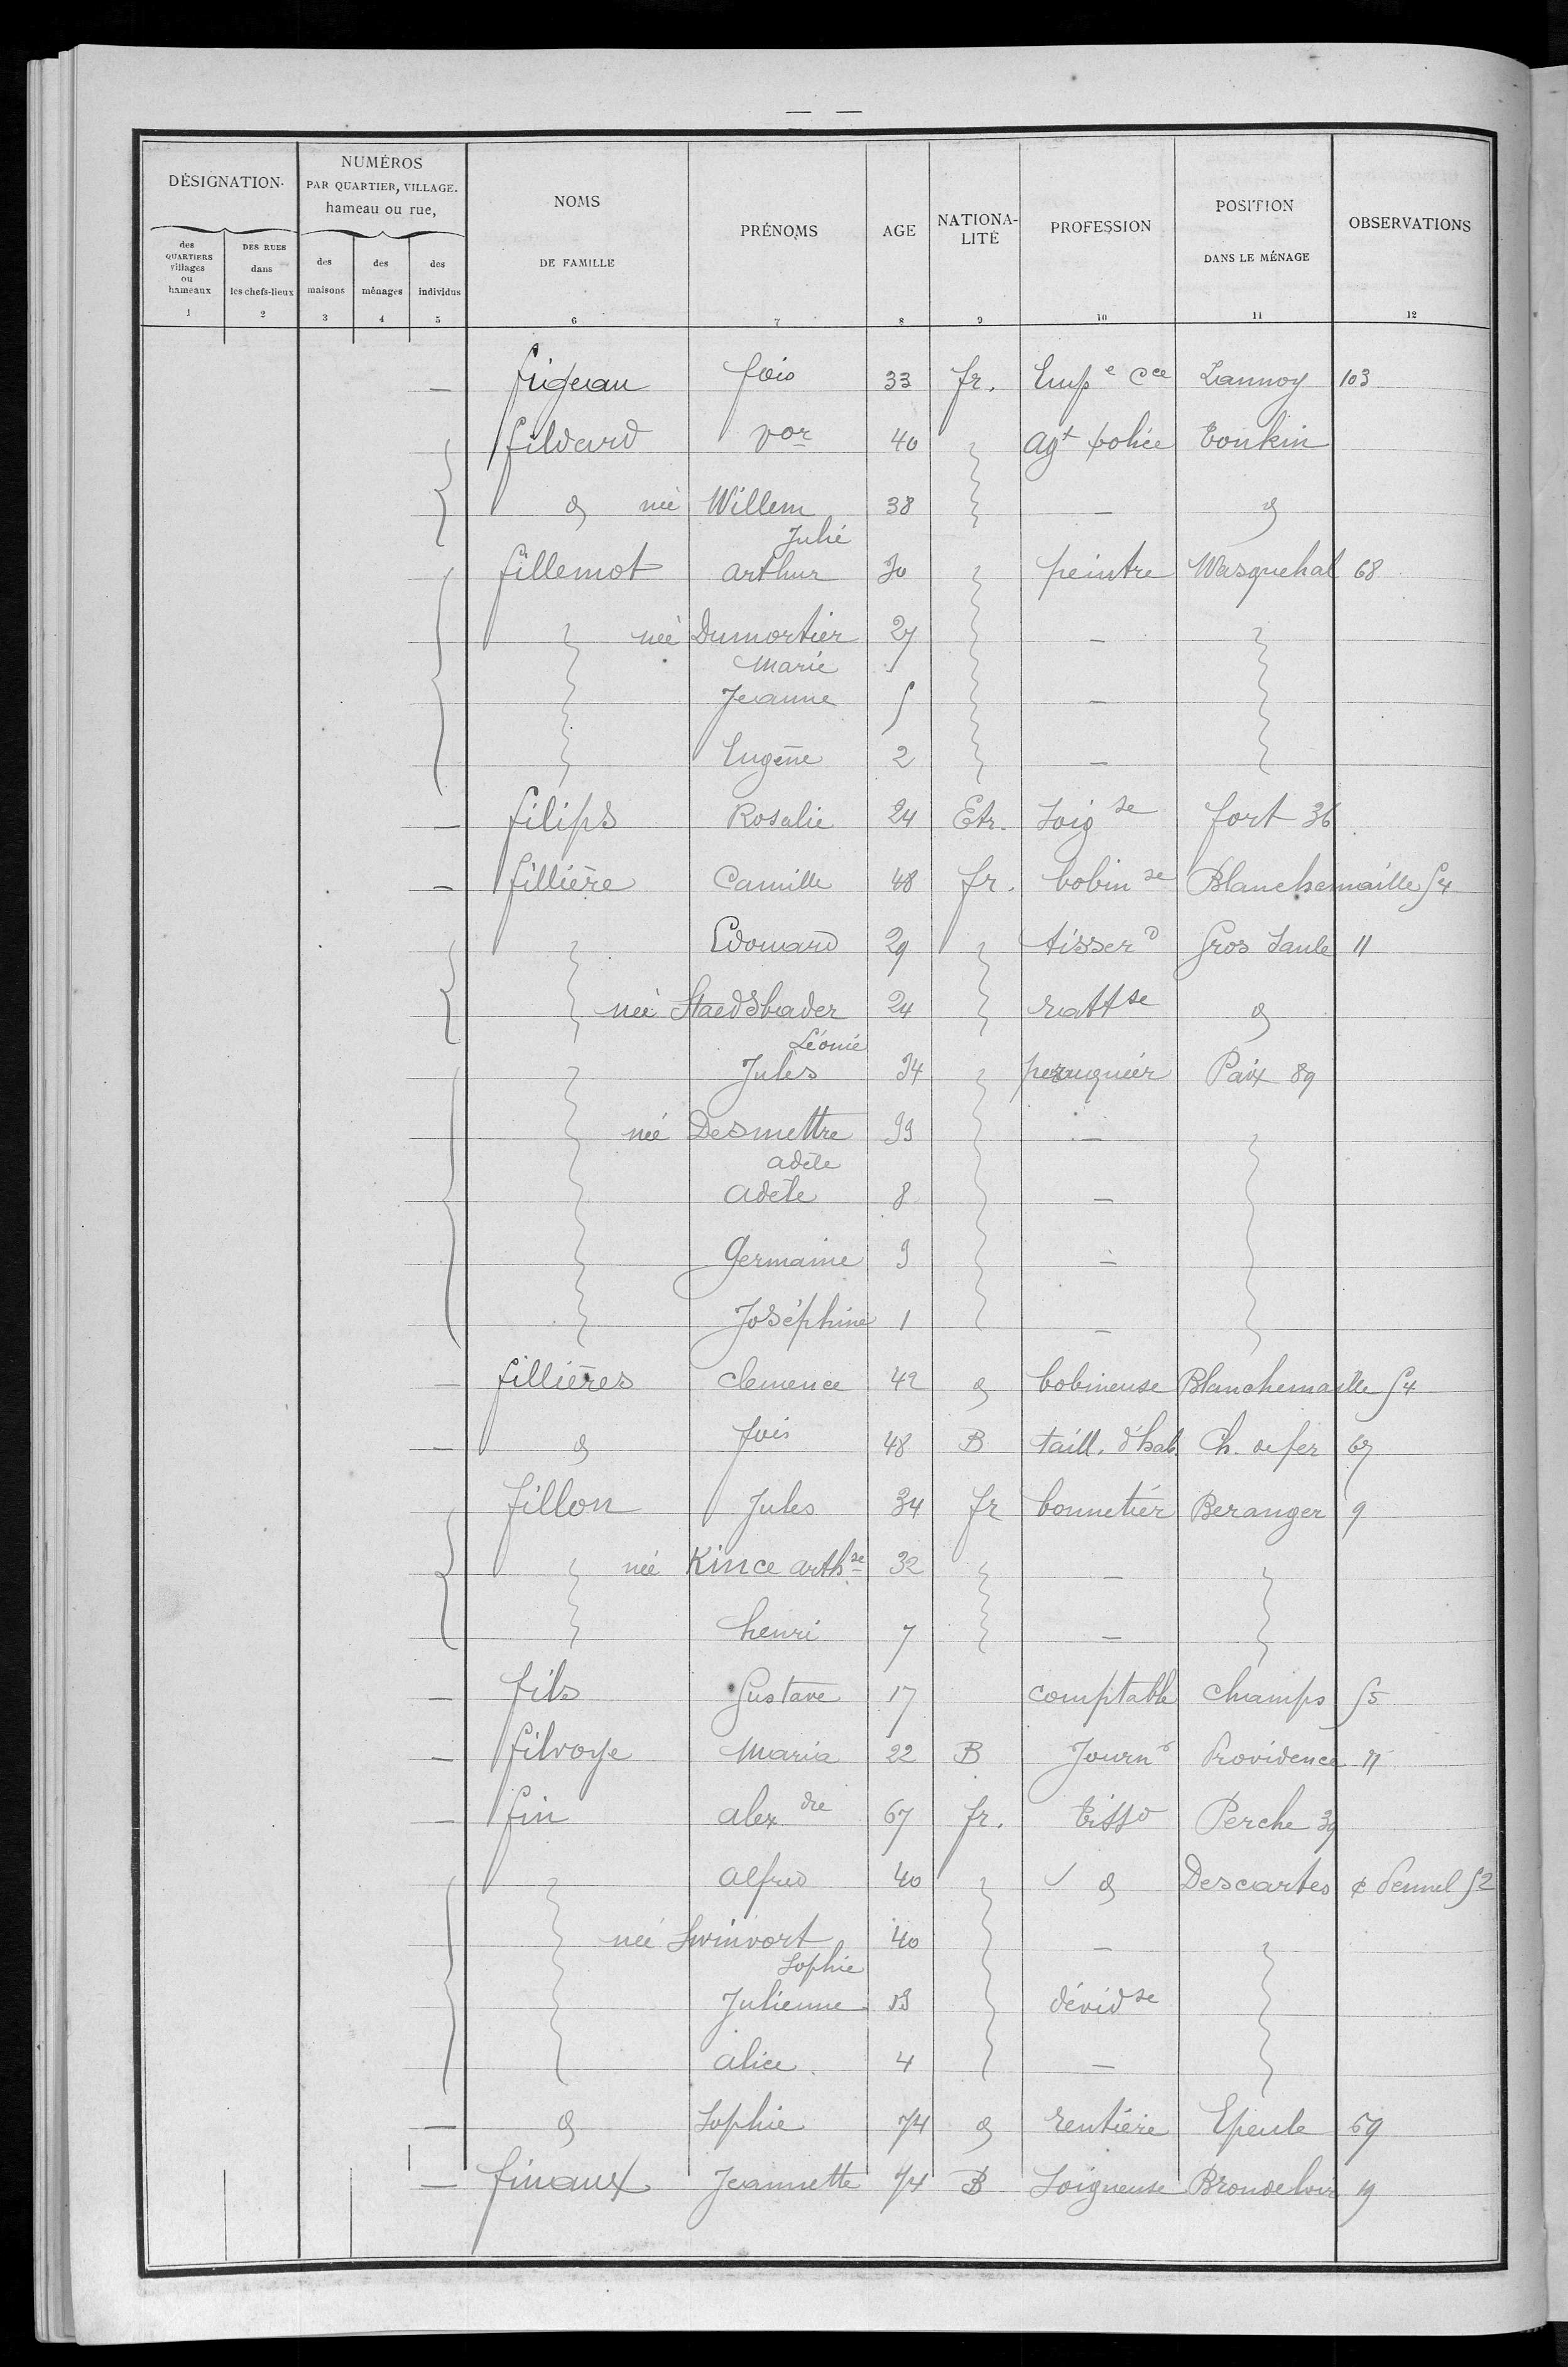 DÉSIGNATION
NUMÉROS
PAR QUARTIER, VILLAGE.
hameau ou rue,
NOMS
DE FAMILLE
PRÉNOMS
AGE
NATIONA-
LITÉ
PROFESSION
POSITION
DANS LE MÉNAGE
OBSERVATIONS
des
QUARTIERS
villages
ou
hameaux
DES RUES
dans
les chefs-lieux
des
maisons
des
ménages
des
individus
1 2 3 4 5 6 7 8 9 10 11 12
— figeau fois 33 fr. Empe Cce Lannoy 103
fildard vor 40 agt police Tonkin
d née Willem 38 — d
Julie
fillemot arthur 30 peintre Wasquehal 68
née Dumortier 27 —
Marie
Jeanne 5 —
Eugène 2 —
— filips Rosalie 24 Etr. Soigse fort 36
— fillière Camille 48 fr. bobinse Blanchemaille 54
Edouard 29 tisserd Gros Saule 11
née Staedsbader 24 rattse d
Léonie
Jules 34 peruquier Paix 89
née Desmettre 33 —
adèle
adèle 8 —
Germaine 3 —
Joséphine 1 —
— fillières Clemence 42 d bobineuse Blanchemaille 54
— d fois 48 B taill. d'hab. Ch. de fer 67
fillon Jules 34 fr bonnetier Beranger 9
née Kince arthse 32 —
henri 7 —
— fils Gustave 17 comptable Champs 55
— filroye Maria 22 B Journe Providence 11
— fin alexdre 67 fr. tissd Perche 39
alfred 40 d Descartes c Pennel 52
née Swinvort 40 —
Sophie
Julienne 13 dévidse
alice 4 —
— d Sophie 74 d rentière Epeule 69
— finaux Jeannette 74 B Soigneuse Brondeloire 19